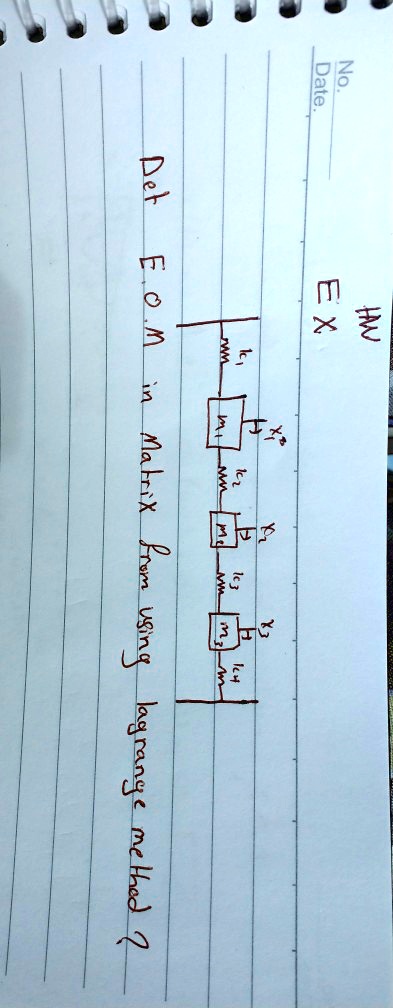 No.
Date.
HW
EX
x₁ x₂ x₃
k₁ m₁ k₂ m₂ k₃ m₃ k₄
Det E.O.M in Matrix from using lagrange method ?